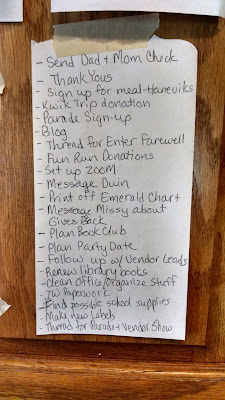 - Send Dad + Mom Check
- Thank Yous
- Sign up for meal-Haneviks
- Kwik Trip donation
- Parade Sign-up
- Blog
- Thread for Enter Farewell
- Fun Run Donations
- Set up Zoom
- Message Dwin
- Print off Emerald Chart
- Message Missy about
Gives Back
- Plan Book Club
- Plan Party Date
- Follow up w/ Vendor Leads
- Renew library books
- Clean Office/Organize Stuff
- JW Paperwork
- Find possible school supplies
- Make new Labels
- Thread for Parade + Vendor Show